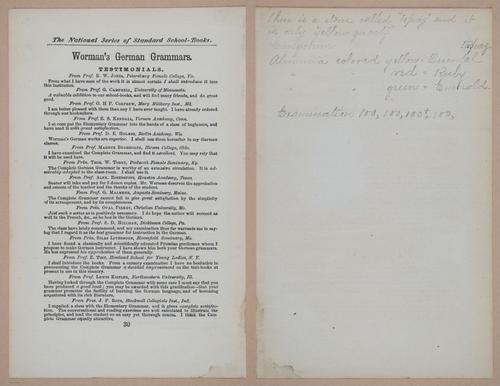 The National Series of Standard School-Books.
Worman's German Grammars.
TESTIMONIALS.
From Prof. R. W. JONES, Petersburg Female College, Va.
From what I have seen of the work it is almost certain I shall introduce it into
this institution.
From Prof. G. CAMPBELL, University of Minnesota.
A valuable addition to our school-books, and will find many friends, and do great
good.
From Prof. O. H. P. CORPREW, Mary Military Inst., Md.
I am better pleased with them than any I have ever taught. I have already ordered
through our booksellers.
From Prof. R. S. KENDALL, Vernon Academy, Conn.
I at once put the Elementary Grammar into the hands of a class of beginners, and
have used it with great satisfaction.
From Prof. D. E. HOLMES, Berlin Academy, Wis.
Worman's German works are superior. I shall use them hereafter in my German
classes.
From Prof. MAGNUS BUCHHOLTZ, Hiram College, Ohio.
I have examined the Complete Grammar, and find it excellent. You may rely that
it will be used here.
From Prin. THOS. W. TOBEY, Paducah Female Seminary, Ky.
The Complete German Grammar is worthy of an extensive circulation. It is ad-
mirably adapted to the class-room. I shall use it.
From Prof. ALEX. ROSENSPITZ, Houston Academy, Texas.
Bearer will take and pay for 3 dozen copies. Mr. Worman deserves the approbation
and esteem of the teacher and the thanks of the student.
From Prof. G. MALMENE, Augusta Seminary, Maine.
The Complete Grammar cannot fail to give great satisfaction by the simplicity
of its arrangement, and by its completeness.
From Prin. OVAL PIRKEY, Christian University, Mo.
Just such a series as is positively necessary. I do hope the author will succeed as
well in the French, &c., as he has in the German.
From Prof. S. D. HILLMAN, Dickinson College, Pa.
The class have lately commenced, and my examination thus far warrants me to say-
ing that I regard it as the best grammar for instruction in the German.
From Prin. SILAS LIVERMORE, Bloomfield Seminary, Mo.
I have found a classically and scientifically educated Prussian gentleman whom I
propose to make German instructor. I have shown him both your German grammars.
He has expressed his approbation of them generally.
From Prof. Z. TEST, Howland School for Young Ladies, N. Y.
I shall introduce the books. From a cursory examination I have no hesitation in
pronouncing the Complete Grammar a decided improvement on the text-books at
present in use in this country.
From Prof. LEWIS KISTLER, Northwestern University, Ill.
Having looked through the Complete Grammar with some care I must say that you
have produced a good book; you may be awarded with this gratification—that your
grammar promotes the facility of learning the German language, and of becoming
acquainted with its rich literature.
From Pres. J. P. ROUS, Stockwell Collegiate Inst., Ind.
I supplied a class with the Elementary Grammar, and it gives complete satisfac-
tion. The conversational and reading exercises are well calculated to illustrate the
principles, and lead the student on an easy yet thorough course. I think the Com-
plete Grammar equally attractive.
30
There is a stone called "topaz" and it
is only "yellow quartz"
Corundum
Topaz
Alumina colored yellow = Oriental
" " red = Ruby
" " green = Emerald
Examination 100, 100, 100, 100,